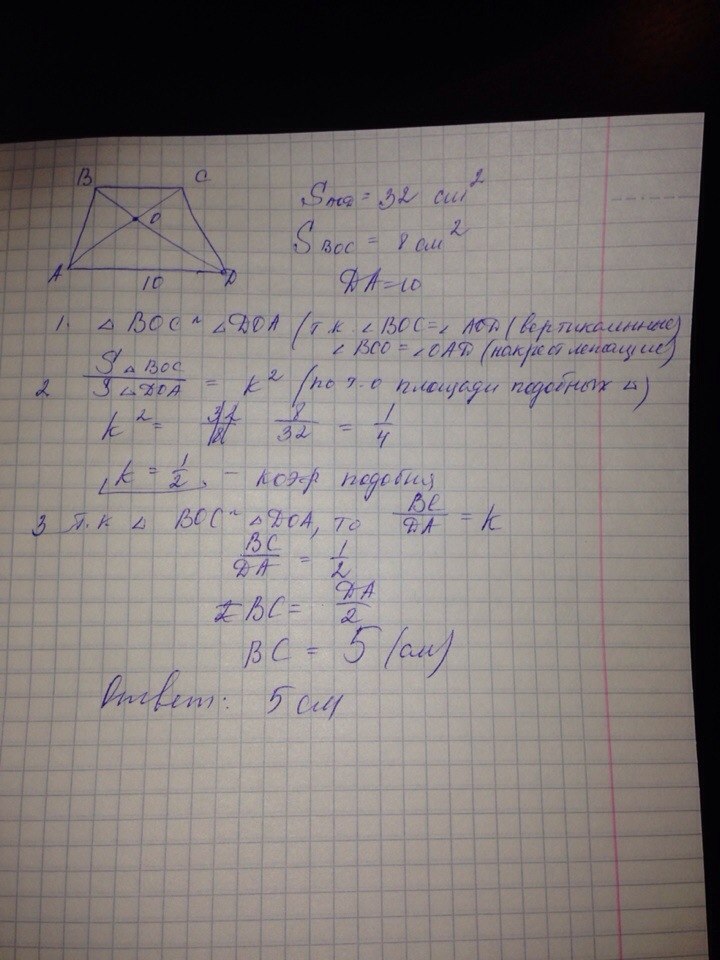 B C
O
A D
10
S AOD = 32 см²
S BOC = 8 см²
DA = 10
1. △ BOC ~ △DOA (т.к. ∠BOC = ∠ AOD (вертикальные)
∠ BCO = ∠OAD (накрест лежащие)
2 S△BOC / S△DOA = k² (по т.о площади подобных △)
k² = 8/32 = 1/4
k = 1/2 - коэф подобия
3 т.к △ BOC ~ △DOA, то BC/DA = k
BC/DA = 1/2
BC = DA/2
BC = 5 (см)
Ответ: 5 см